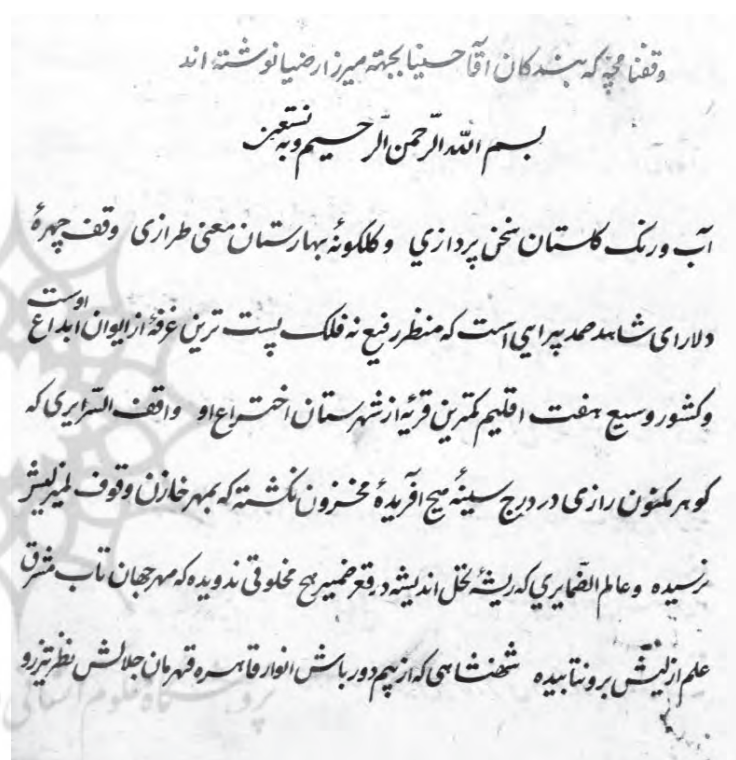 وقفنامچه که بندکان اقآ حسینا بجهته میرزا رضیا نوشته اند
بسم الله الرّحمن الرّحیم وبه نستعین
آب ورنک کلستان سخن پردازي وکلکونهٔ بهارستان معنی طرازی وقف چهرهٔ
دلارای شاهد صمد پیرایی است که منظر رفیع نه فلک پست ترین غرفهٔ از ایوان ابداع اوست
وکشور وسیع هفت اقلیم کمترین قریهٔ از شهرستان اختراع او واقف السّرایری که
کوهر مکنون رازی در درج سینهٔ هیچ آفریدهٔ مخزون نکشته که بمهر خازن وقوف لمیزلیش
نرسیده وعالم الضّمایري که ریشهٔ نخل اندیشه در قعر ضمیر هیچ مخلوقی ندویده که مهر جهان تاب مشرق
علم ازلیّش برو نتابیده شهنشاهی که از بیم دورباش انوار قاهره قهرمان جلالش نظر تیزرو